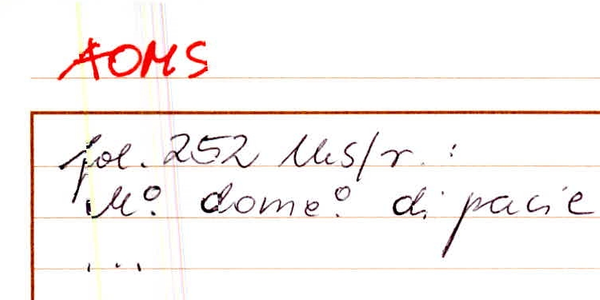 AOMS
fol. 252 Ms/r. :
Mº. domeº. di pacie
...